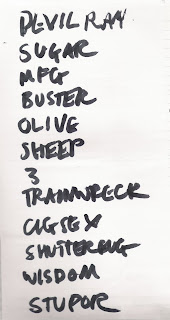 DEVIL RAY
SUGAR
MFG
BUSTER
OLIVE
SHEEP
3
TRAINWRECK
CIGSEX
SHUTTERBUG
WISDOM
STUPOR